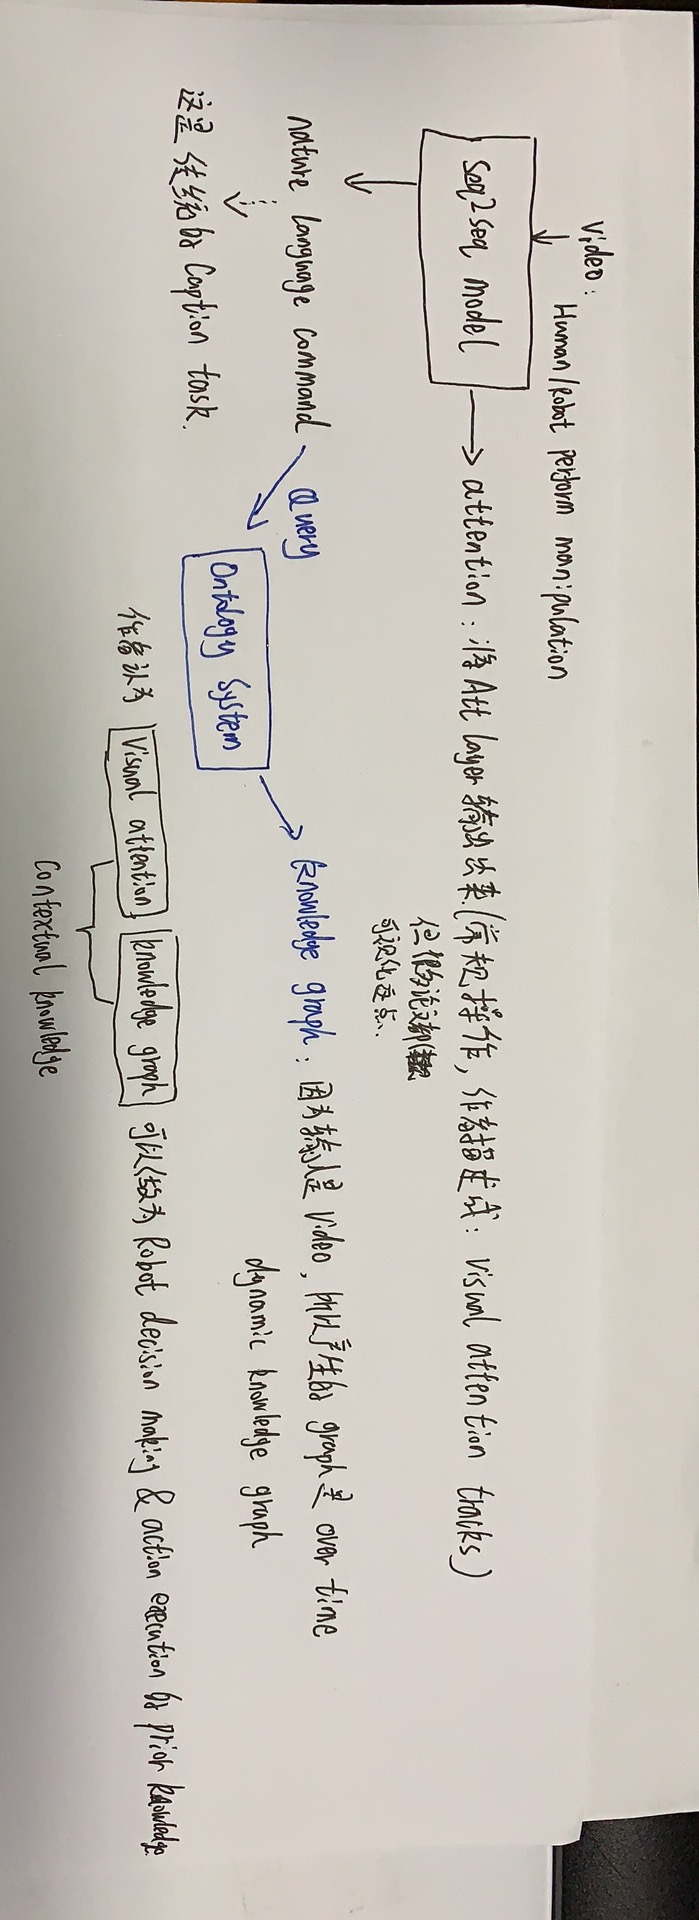 Video: Human/Robot perform manipulation
seq2seq model
attention: 将Att layer 输出出来(常规操作, 作者描述成: visual attention tracks)
但很多论文都
可视化这点.
nature language command
Query
这是传统的 Caption task.
Ontology System
knowledge graph: 因为输入是 Video, 所以产生的 graph 是 over time
dynamic knowledge graph
作者认为 Visual attention, knowledge graph 可以做为 Robot decision making & action execution 的 prior knowledge.
Contextual knowledge